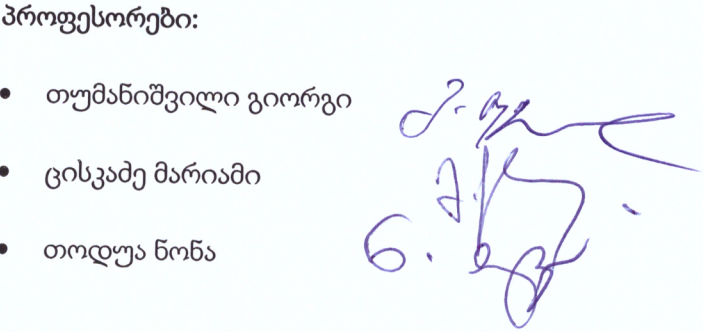 პროფესორები:
• თუმანიშვილი გიორგი
• ცისკაძე მარიამი
• თოდუა ნონა